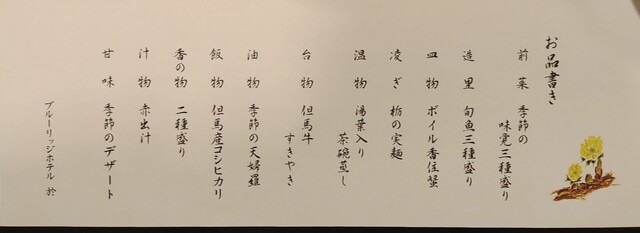 お品書き
前菜 季節の
味覚三種盛り
造里 旬魚三種盛り
皿物 ボイル香住蟹
凌ぎ 栃の実麺
温物 湯葉入り
茶碗蒸し
台物 但馬牛
すきやき
油物 季節の天婦羅
飯物 但馬産コシヒカリ
香の物 二種盛り
汁物 赤出汁
甘味 季節のデザート
ブルーリッジホテル 於